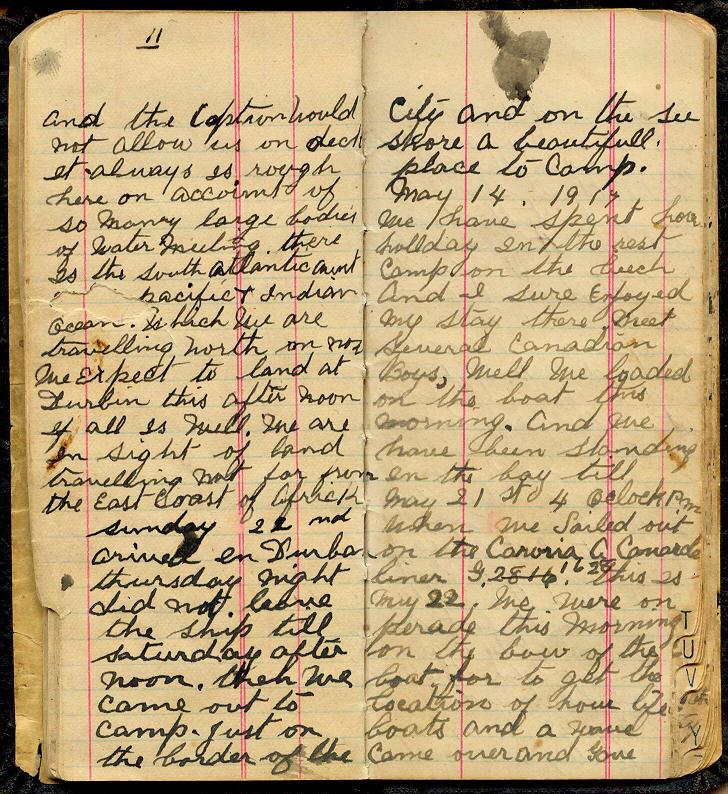 11
and the Caption would
not allow us on deck
it always is rough
here on account of
so many large bodies
of water meeting. there
is the South atlantic
pacific & Indian
ocean. which we are
travelling north on now
we expect to land at
Durbin this after noon
if all is well. we are
in sight of land
travelling not far from
the East Coast of Africa
sunday 22 nd
arived en Durban
thursday night
did not leave
the ship till
saturday after
noon. then we
came out to
camp. just on
the border of the
City and on the see
shore a beautifull.
place to Camp.
May 14. 1917
we have spent hour
holiday in the rest
Camp on the beech
And I sure Enjoyed
my stay there. meet
several Canadian
Boys, Well We loaded
on the boat this
morning. And we
have been standing
en the bay till
May 21 st 4 oclock Pm
when we Sailed out
on the Caronia A Canarde
liner 1628 This is
My 22. We were on
perade this morning
on the bow of the
boat for to get the
location of hour life
boats and a wave
came over and
T
U
V
Y